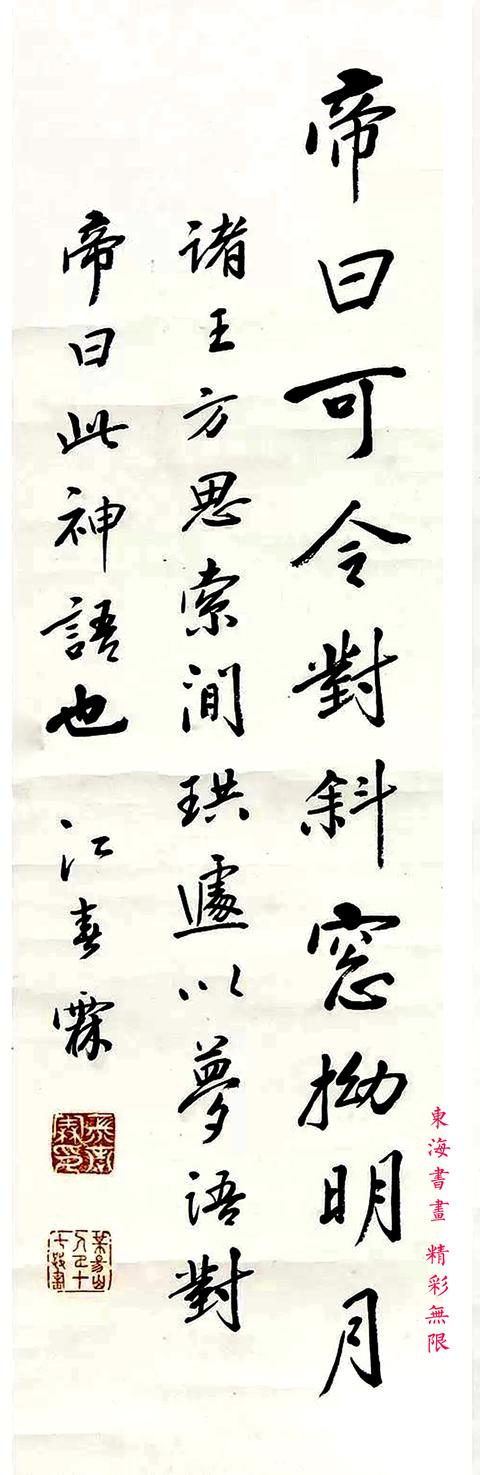 帝曰可令對斜窓拗明月
诸王方思索間珙遽以夢语對
帝曰此神語也
江春霖
東海書畫 精彩無限